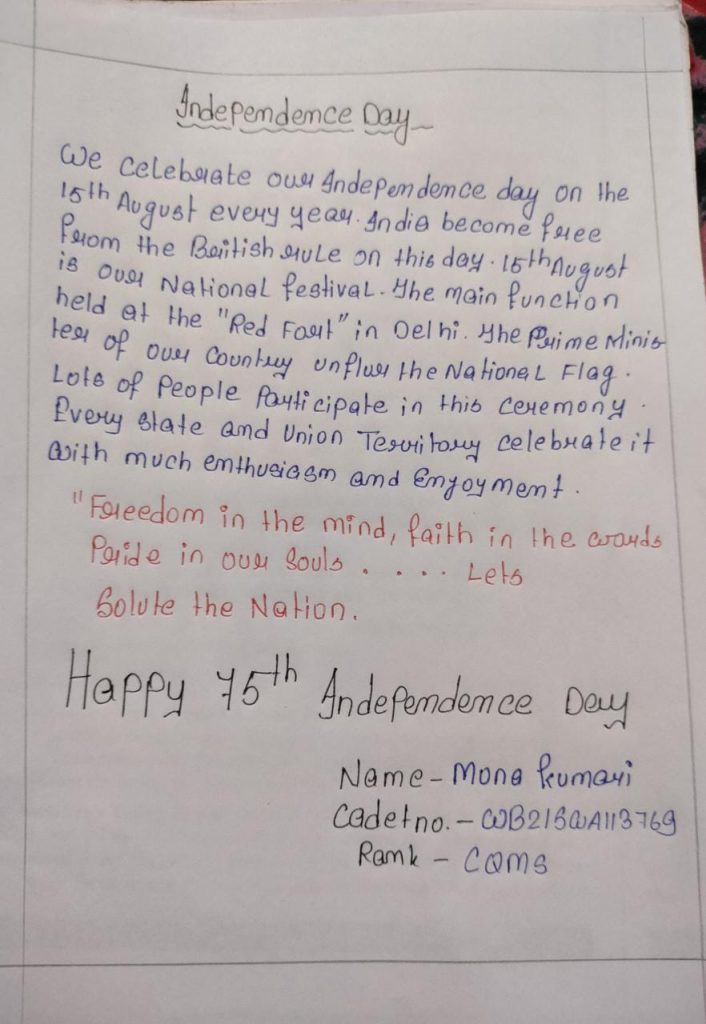 Independence Day
We Celebrate our Independence day on the
15th August every year. India become free
from the British rule on this day. 15th August
is our National festival. The main function
held at the "Red Fort" in Delhi. The Prime Minis
ter of our Country unflur the National Flag.
Lots of People Participate in this ceremony.
Every state and Union Territory celebrate it
with much enthusiasm and Enjoyment.
"Freedom in the mind, faith in the words
Pride in our Souls . . . . . Lets
Solute the Nation.
Happy 75th Independence Day
Name - Mona Kumari
Cadet no. - WB21SWA113769
Rank - CQMS